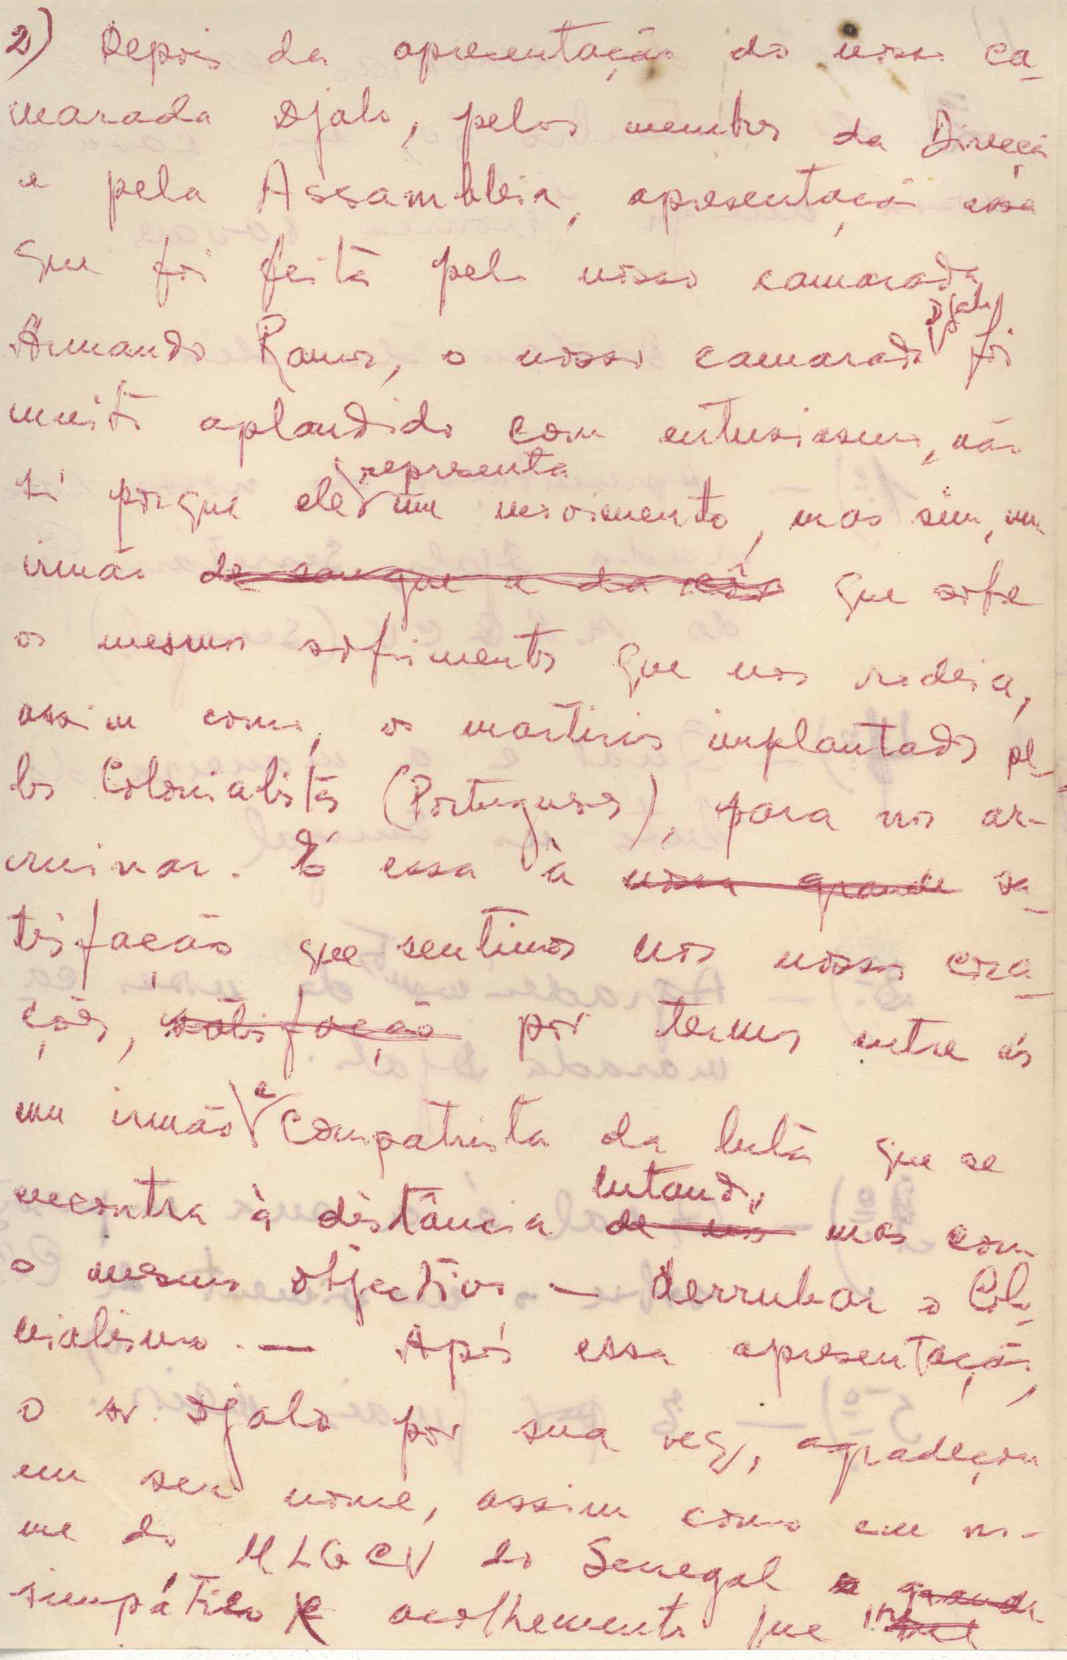 2) Depois da apresentação do nosso ca-
marada Djalo, pelos membros da Direcçã
e pela Assambleia, apresentaçã essa
que foi feita pelo nosso camarada
Armando Ramos, o nosso camarada Djalo foi
muito aplaudido com entusiasmo, não
só porque ele representa um movimento, mas sim, um
irmão de sangue e da côr que sofre
os mesmos sofrimentos que nos rodeia,
assim como, os martirios implantados pe-
los Colonialistas (Portugueses), para nos ar-
ruinar. É essa à nossa grande sa-
tisfação que sentimos nos nossos cora-
ções, satisfação por termos entre nós
um irmão e compatrista da luta que se
encontra à distância de nós lutando, mas com
o mesmo objectivos — derrubar o Colo-
nialismo. — Após essa apresentação,
o sr. Djalo por sua vez, agradeçou
em seu nome, assim como em no-
me do MLGCV do Senegal a grande
simpático e acolhemento que